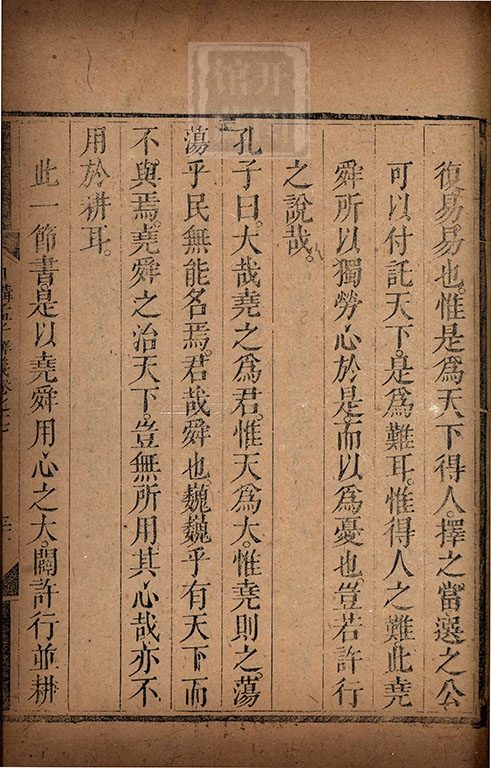 復易易也。惟是爲天下得人。擇之當。選之公
可以付託天下。是爲難耳。惟得人之難。此堯
舜所以獨勞心於是。而以爲憂也。豈若許行
之說哉。
孔子曰。大哉堯之爲君。惟天爲大。惟堯則之。蕩
蕩乎民無能名焉。君哉舜也。巍巍乎有天下而
不與焉。堯舜之治天下。豈無所用其心哉。亦不
用於耕耳。
此一節書。是以堯舜用心之大。闢許行並耕